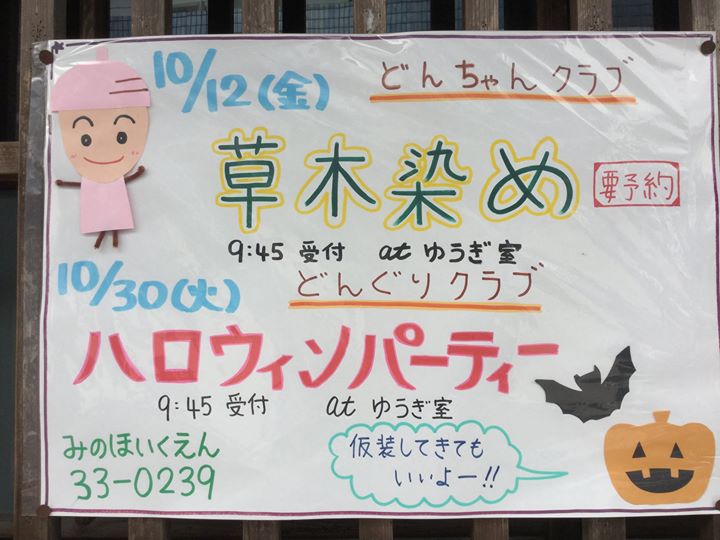 10/12(金) どんちゃんクラブ
草木染め 要予約
9:45 受付 at ゆうぎ室
10/30(火) どんぐりクラブ
ハロウィンパーティー
9:45 受付 at ゆうぎ室
みのほいくえん
33-0239
仮装してきても
いいよー!!